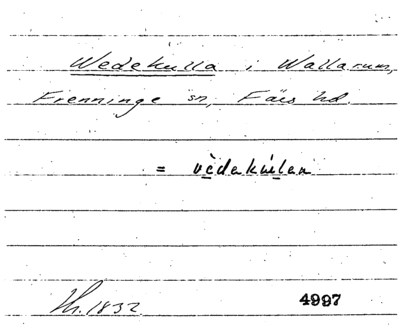 Wedekulla i Wallarum,
Frenninge sn, Färs hd.
= vèdakúlan
Th. 1832
4997